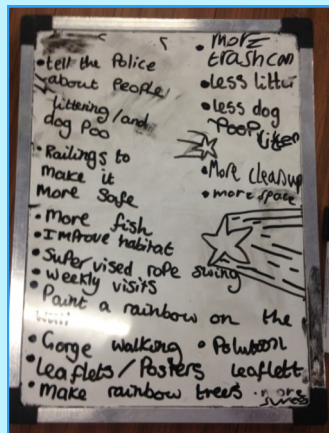 • tell the Police
about People
littering / and
dog Poo
• Railings to
make it
More Safe
• More fish
• Improve habitat
• Supervised rope swing
• weekly visits
• Paint a rainbow on the
• Gorge walking
• Leaflets / Posters
• make rainbow trees
• More
trashcan
• less
• less dog
Poop
• More cleanup
• more space
leaflett